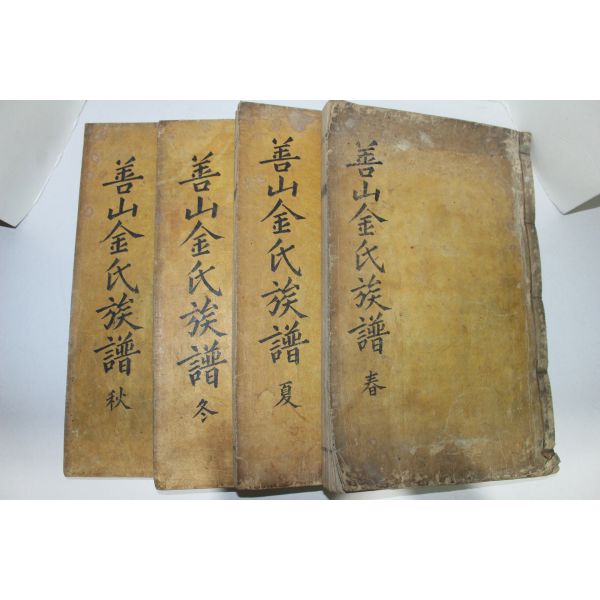 善山金氏族譜 春
善山金氏族譜 夏
善山金氏族譜 冬
善山金氏族譜 秋